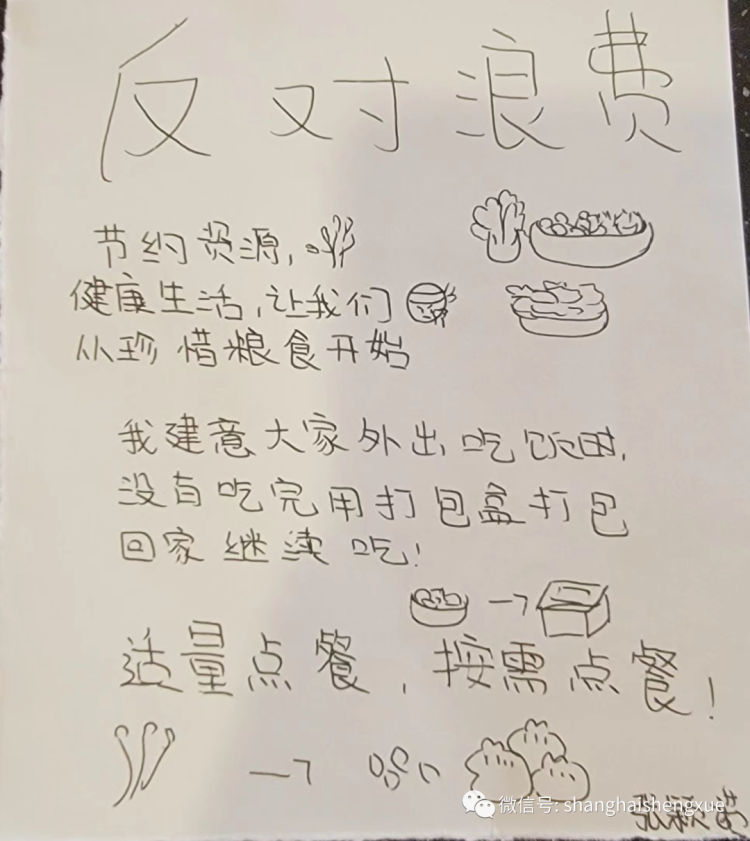 反对浪费
节约资源,
健康生活,让我们
从珍惜粮食开始
我建意大家外出吃饭时,
没有吃完用打包盒打包
回家继续吃!
适量点餐,按需点餐!
微信号: shanghaishengxue